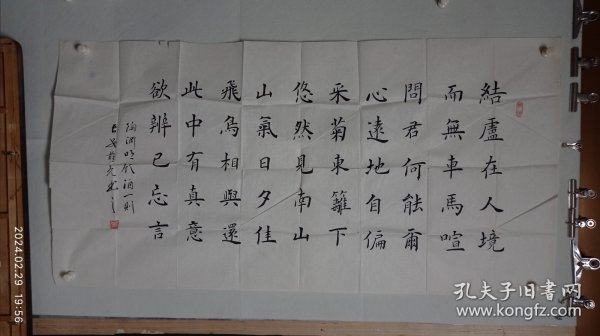 結廬在人境
而無車馬喧
問君何能爾
心遠地自偏
采菊東籬下
悠然見南山
山氣日夕佳
飛鳥相與還
此中有真意
欲辨已忘言
陶淵明飲酒一則
2024.02.29 19:56
孔夫子旧书网
www.kongfz.com